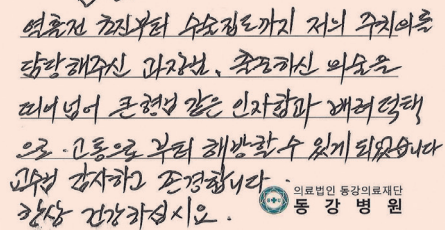 역류전 초진부터 수술집도까지 저의 주치의를
담당해주신 과장님, 훌륭하신 의술을
뛰어넘어 큰형님 같은 인자함과 배려덕택
으로 고통으로 부터 해방할 수 있게 되었습니다
교수님 감사하고 존경합니다.
항상 건강하십시요.
의료법인 동강의료재단
동강병원